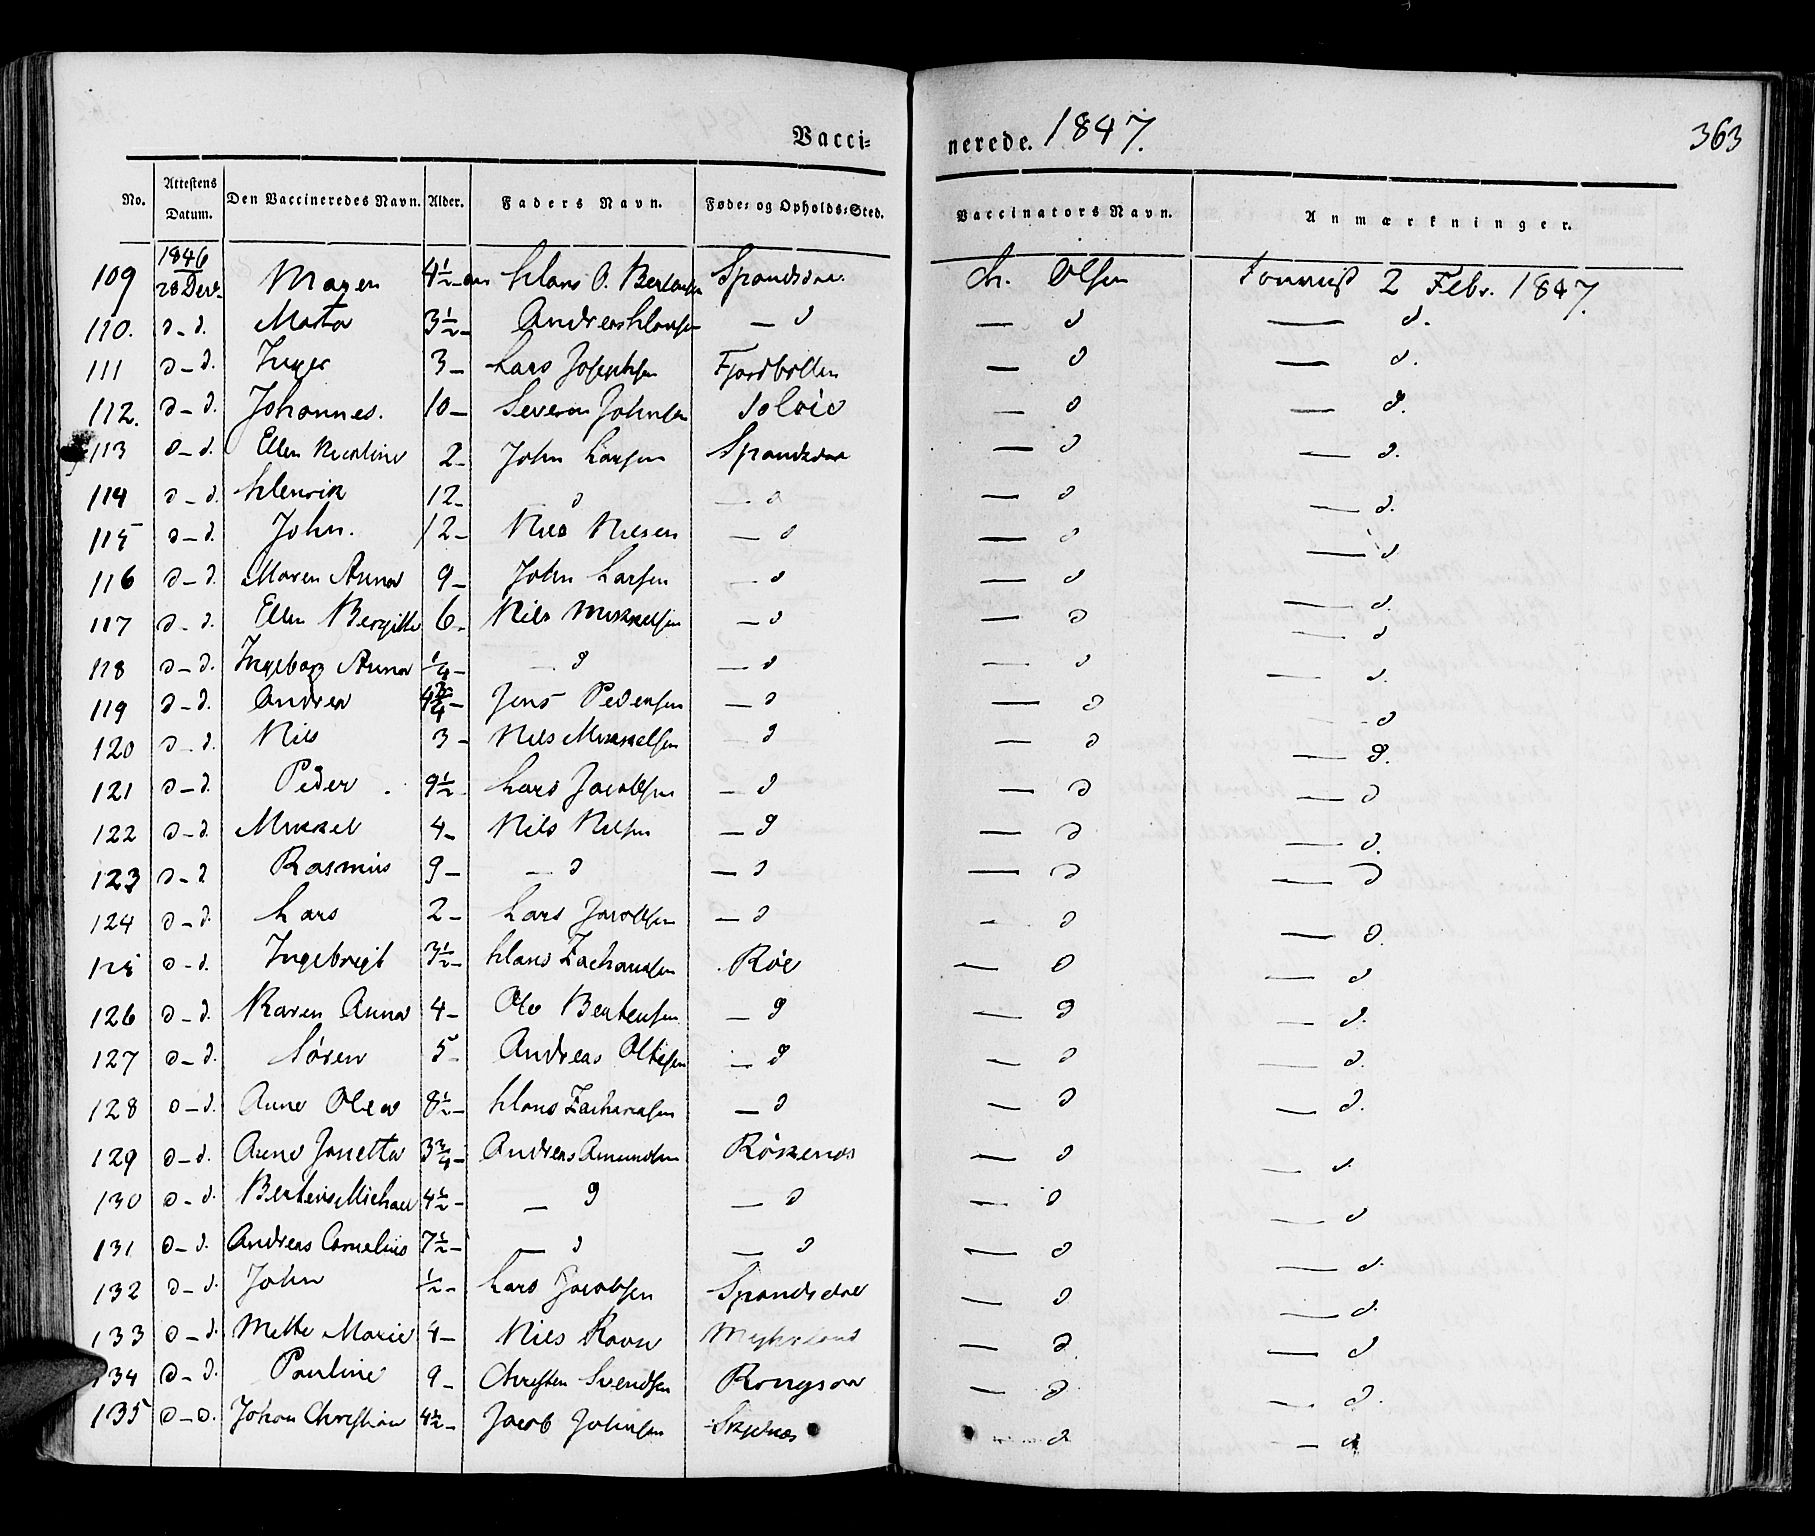 Vacci-nerede. 1847. 363
No. Attestens Datum. Den Vaccineredes Navn. Alder. Faders Navn. Føde- og Opholds-Sted. Vaccinators Navn. Anmærkninger.
109 1846 28 Decr. Maren 4 1/2 aar Hans O. Bertausen Spandsdal. Ch. Olsen 2 Febr. 1847.
110. d - d. Marta 3 1/2 - Andreas Hansen — d — d — d.
111 d - d. Inger 3 - Lars Josephsen Fjordbotten — d — d.
112. d - d. Johannes. 10 - Severin Johnsen — d — d.
113 d - d. Ellen Nicoline 2 - John Larsen Spandsdal — d — d.
114 d - d. Henrik 12 - d — d — d — d.
115 d - d. John. 12 - Nils Nilsen — d — d — d
116 d - d. Maren Anna 9 - John Larsen — d — d — d.
117 d - d. Ellen Bergitte 6 - Nils Mikkelsen — d — d — d
118 d - d. Ingeborg Anna 1/4 - — d — d — d — d.
119 d - d. Andrea 4 3/4 - Jens Pedersen — d — d — d
120 d - d. Nils 3 - Nils Mikkelsen — d — d — d.
121 d - d. Peder 9 1/2 - Lars Jacobsen — d — d — d
122 d - d. Mikkel 4 - Nils Nilsen — d — d — d.
123 d - d Rasmus 9 - — d — d — d — d
124 d - d. Lars 2 - Lars Jacobsen — d — d — d.
125 d - d. Ingebrigt 3 1/2 - Hans Zachariasen Røe — d — d
126 d - d. Karen Anna 4 - Ole Bertensen — d — d — d.
127 d - d. Søren 5 - Andreas Oltesen — d — d — d.
128 d - d. Anne Olea 8 1/2 - Hans Zachariasen — d — d — d.
129 d - d. Anne Jonetta 3 3/4 - Andreas Amundsen Røkenes — d — d.
130 d - d. Berteus Michael 4 1/2 - — d — d — d — d
131 d - d. Andreas Cornelius 7 1/2 - — d — d — d — d.
132 d - d. John 1/2 - Lars Jacobsen Spandsdal — d — d.
133 d - d. Mette Marie 4 - Nils Ravn — d — d
134 d - d. Pauline 9 - Christen Svendsen — d — d.
135 d - d. Johan Christian 4 1/2 - Jacob Johnsen Skjelnes — d — d